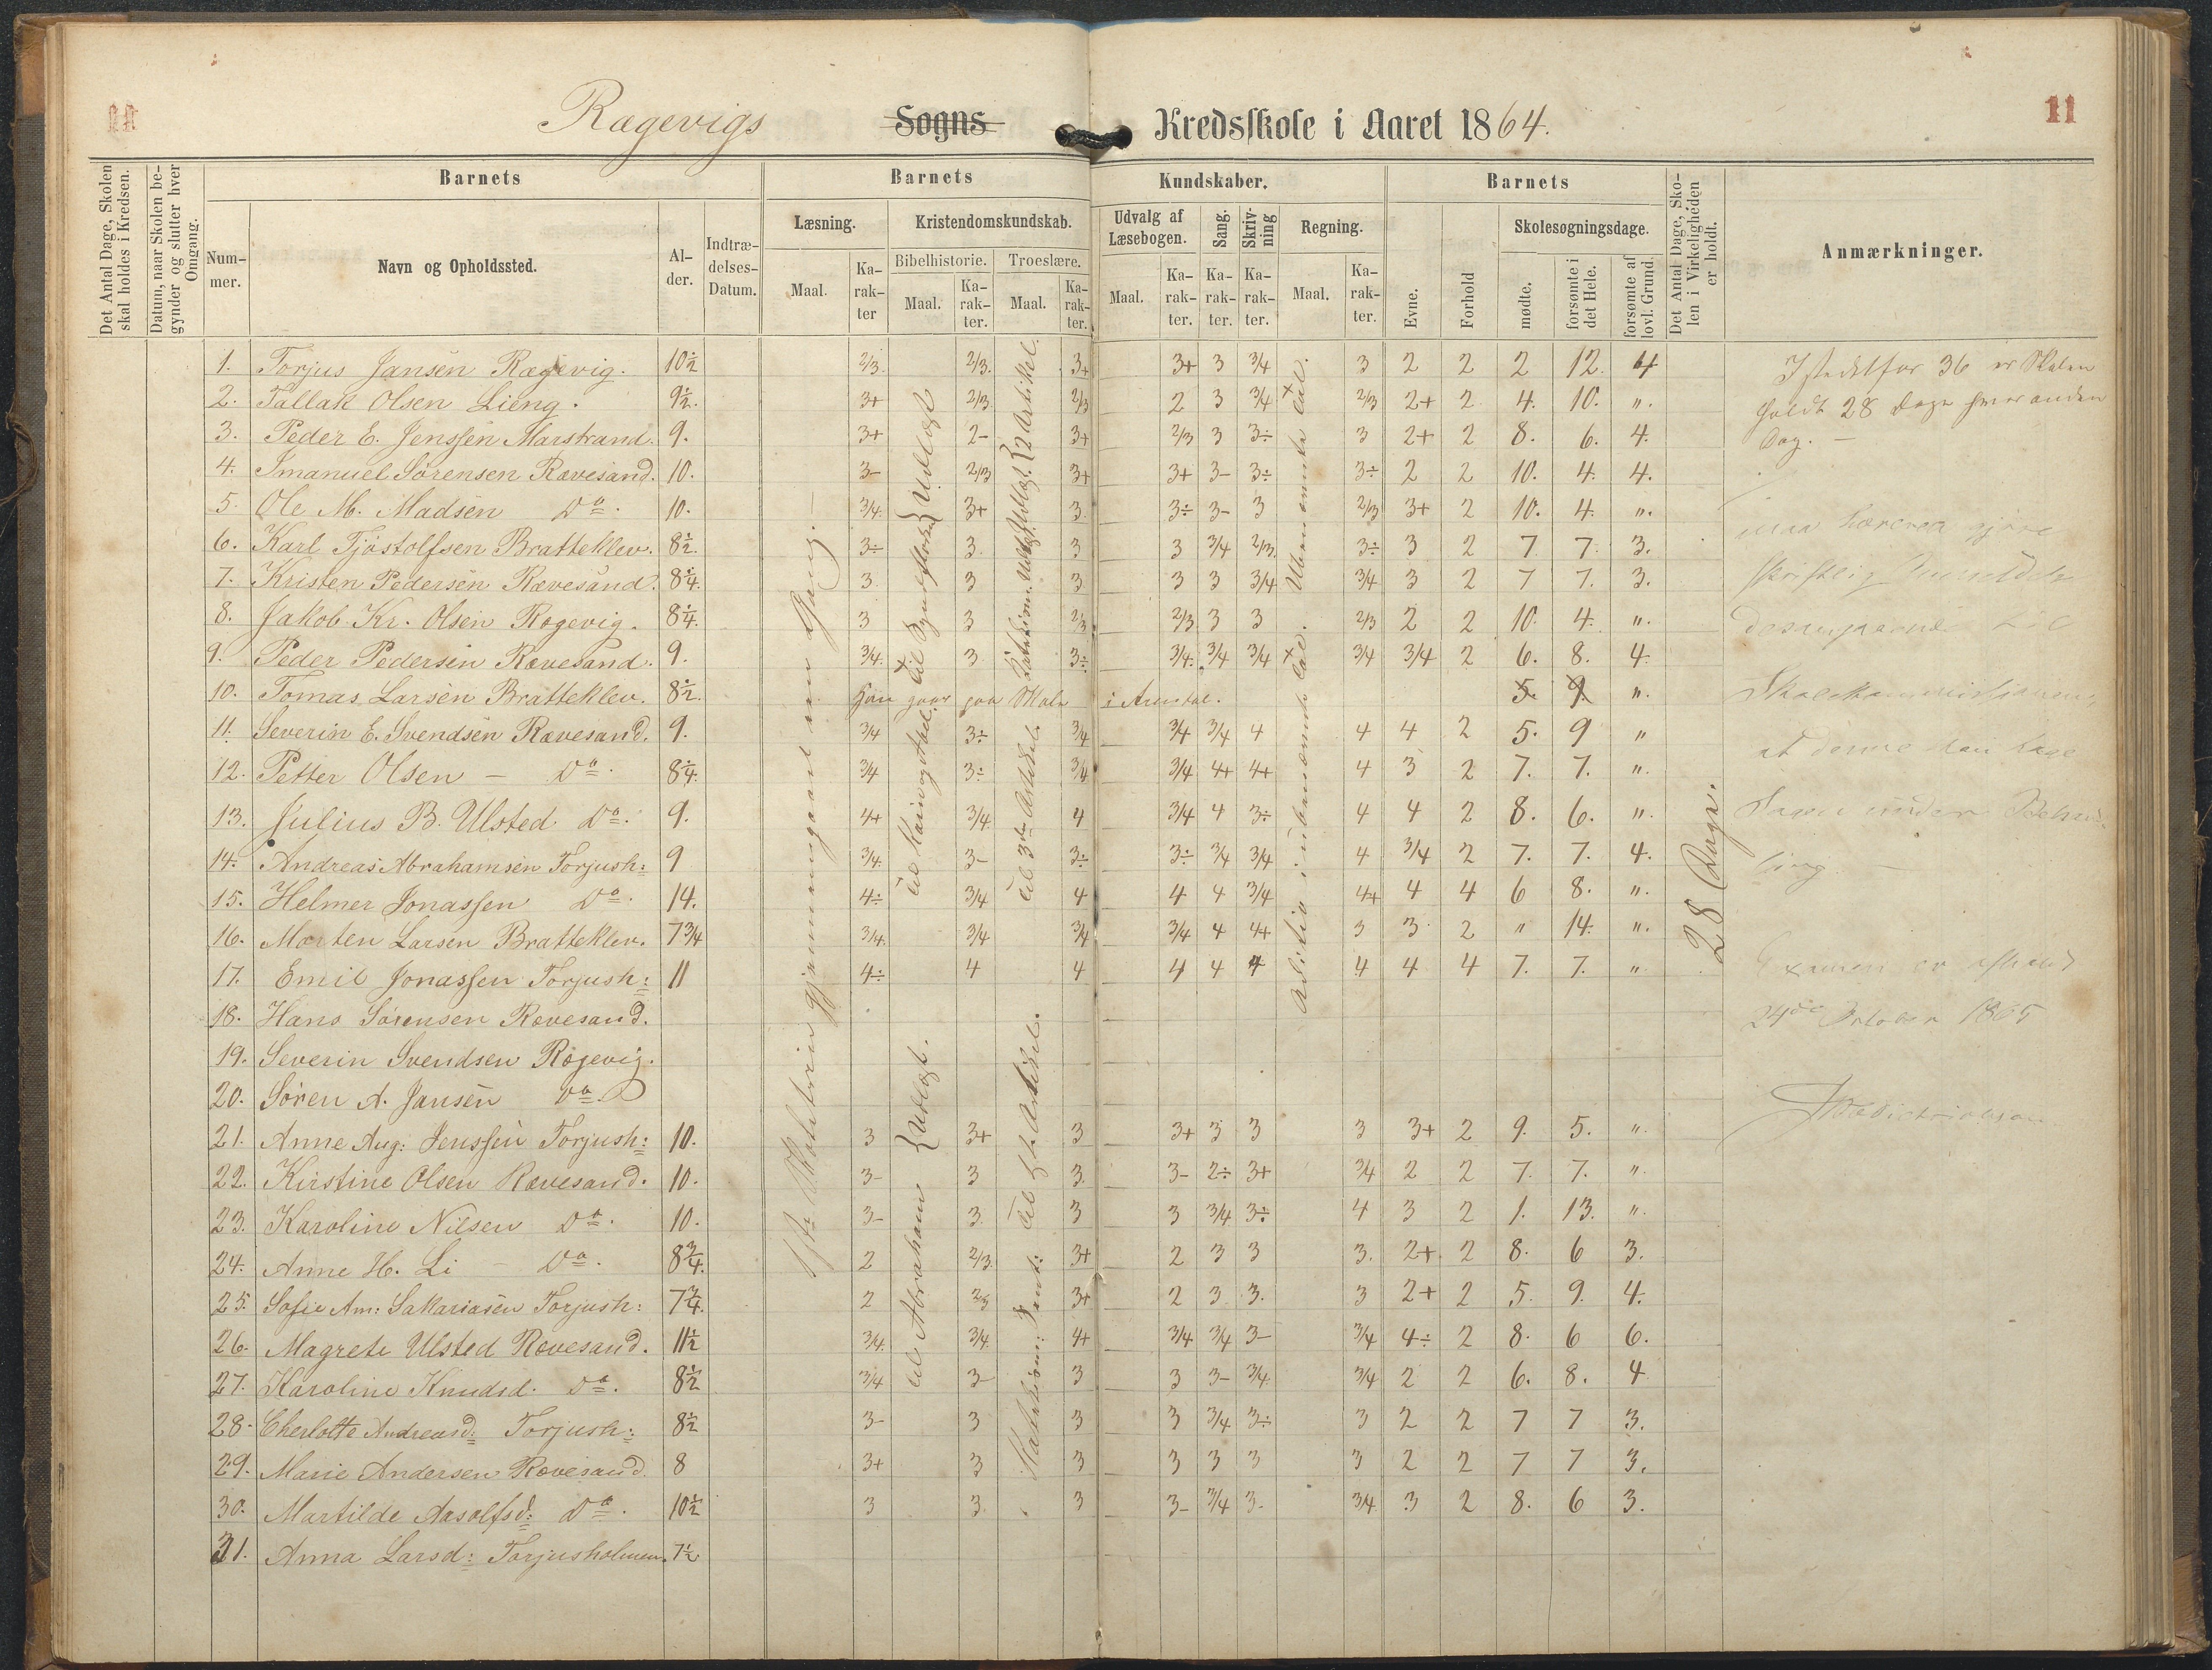 11 11
Rægevigs Sogns Kredsskole i Aaret 1864.
Det Antal Dage, Skolen skal holdes i Kredsen.
Datum, naar Skolen begynder og slutter hver Omgang.
Barnets
Num-mer.
Navn og Opholdssted.
Al-der.
Indtræ-delses-Datum.
Barnets Kundskaber.
Læsning.
Maal. Ka-rak-ter
Kristendomskundskab.
Bibelhistorie. Troeslære.
Maal. Ka-rak-ter. Maal. Ka-rak-ter.
Udvalg af Læsebogen.
Maal. Ka-rak-ter.
Sang. Ka-rak-ter.
Skriv-ning Ka-rak-ter.
Regning.
Maal. Ka-rak-ter.
Barnets
Evne. Forhold
Skolesøgningsdage.
mødte. forsømte i det Hele. forsømte af lovl. Grund.
Det Antal Dage, Sko-len i Virkeligheden er holdt.
Anmærkninger.
1. Torjus Jansen Rægevig. 10½ 2/3. 2/3. 3+ 3+ 3 3/4 3 2 2 2 12. 4
2. Tallak Olsen Lieng. 9½. 3+ 2/3 2/3 2 3 3/4 2/3 2+ 2 4. 10. "
3. Peder E. Jenssen Marstrand. 9. 3+ 2- 3+ 2/3 3 3÷ 3 2+ 2 8. 6. 4.
4. Imanuel Sørensen Rævesand. 10. 3- 2/3 3+ 3+ 3- 3÷ 3÷ 2 2 10. 4. 4.
5. Ole M. Madsen Do. 10. 3/4. 3+ 3. 3÷ 3- 3 2/3 3+ 2 10. 4. "
6. Karl Tjøstolfsen Bratteklev. 8½. 3÷ 3. 3 3 3/4 2/3. 3÷ 3 2 7 7. 3.
7. Kristen Pedersen Rævesand. 8¼. 3. 3 3 3 3 3/4 3/4 3 2 7 7. 3.
8. Jakob Kr. Olsen Rægevig. 8¼. 3 3 2/3 2/3 3 3 2/3 2 2 10. 4. "
9. Peder Pedersen Rævesand. 9. 3/4. 3 3÷ 3/4. 3/4 3/4 3/4 3/4 2 6. 8. 4.
10. Tomas Larsen Bratteklev. 8½. Han gaar paa Skole i Arendal. 5. 9. "
11. Severin E. Svendsen Rævesand. 9. 3/4 3÷ 3/4 3/4 3/4 4 4 4 2 5. 9 "
12. Petter Olsen – Do. 8¼. 3/4 3÷ 3/4 3/4 4+ 4+ 4 3 2 7. 7. "
13. Julius B. Ulsted Do. 9. 4+ 3/4. 4 3/4 4 3÷ 4 4 2 8. 6. "
14. Andreas Abrahamsen Torjush: 9 3/4. 3- 3÷ 3÷ 3/4 3/4 4 3/4 2 7. 7. 4.
15. Helmer Jonassen Do. 14. 4÷ 3/4 4 4 4 3/4 4+ 4 4 6 8. "
16. Morten Larsen Bratteklev. 7¾ 3/4. 3/4 3/4 3/4 4 4+ 3 3 2 " 14. "
17. Emil Jonassen Torjush: 11 4÷ 4 4 4 4 4 4 4 4 7. 7. "
18. Hans Sørensen Rævesand.
19. Severin Svendsen Rægevig.
20. Søren A. Jansen Do.
21. Anne Aug: Jenssen Torjush: 10. 3 3+ 3 3+ 3 3 3 3+ 2 9. 5. "
22. Kirstine Olsen Rævesand. 10. 3- 3 3. 3- 2÷ 3+ 3/4 2 2 7. 7. "
23. Karoline Nilsen Do. 10. 3- 3. 3 3 3/4 3÷ 4 3 2 1. 13. "
24. Anne H. Li – Do. 8¾. 2 2/3. 3+ 2 3 3 3. 2+ 2 8. 6 3.
25. Sofie Am: Sakariasen Torjush: 7¾. 2 2/3 3+ 2 3 3. 3 2+ 2 5. 9. 4.
26. Magrete Ulsted Rævesand. 11½ 3/4. 3/4. 4+ 3/4 3/4 3- 3/4 4÷ 2 8. 6 6.
27. Karoline Knudsd. Do. 8½ 3/4 3- 3 3 3- 3/4. 3/4 2 2 6. 8. 4
28. Cherlotte Andreasd: Torjush: 8½ 3- 3 3 3 3/4 3÷ 3 2 2 7 7 3.
29. Marie Andersen Rævesand. 8 3+ 3 3 3 3 3 3 2 2 7 7 3.
30. Martilde Aasolfsd: Do. 10½ 3 3. 3 3- 3/4 3- 3/4 3 2 8. 6 3.
31. Anna Larsd: Torjusholmen. 7½.
gjennemgaaet en Gang. –
Til Syndfloden } Udlagt
Til Kain og Abel.
til Abraham { Udlagt.
{ 2 Artikel.
til 3die Artikel.
28 Dage.
Istedetfor 36 er Skolen
holdt 28 Dage hver anden
Dag. –
maa Læreren gjøre
skriftlig
Skolekommissionen,
at denne kan tage
Sagen under Behand-
ling. –
Examen er afholdt
24de October 1865